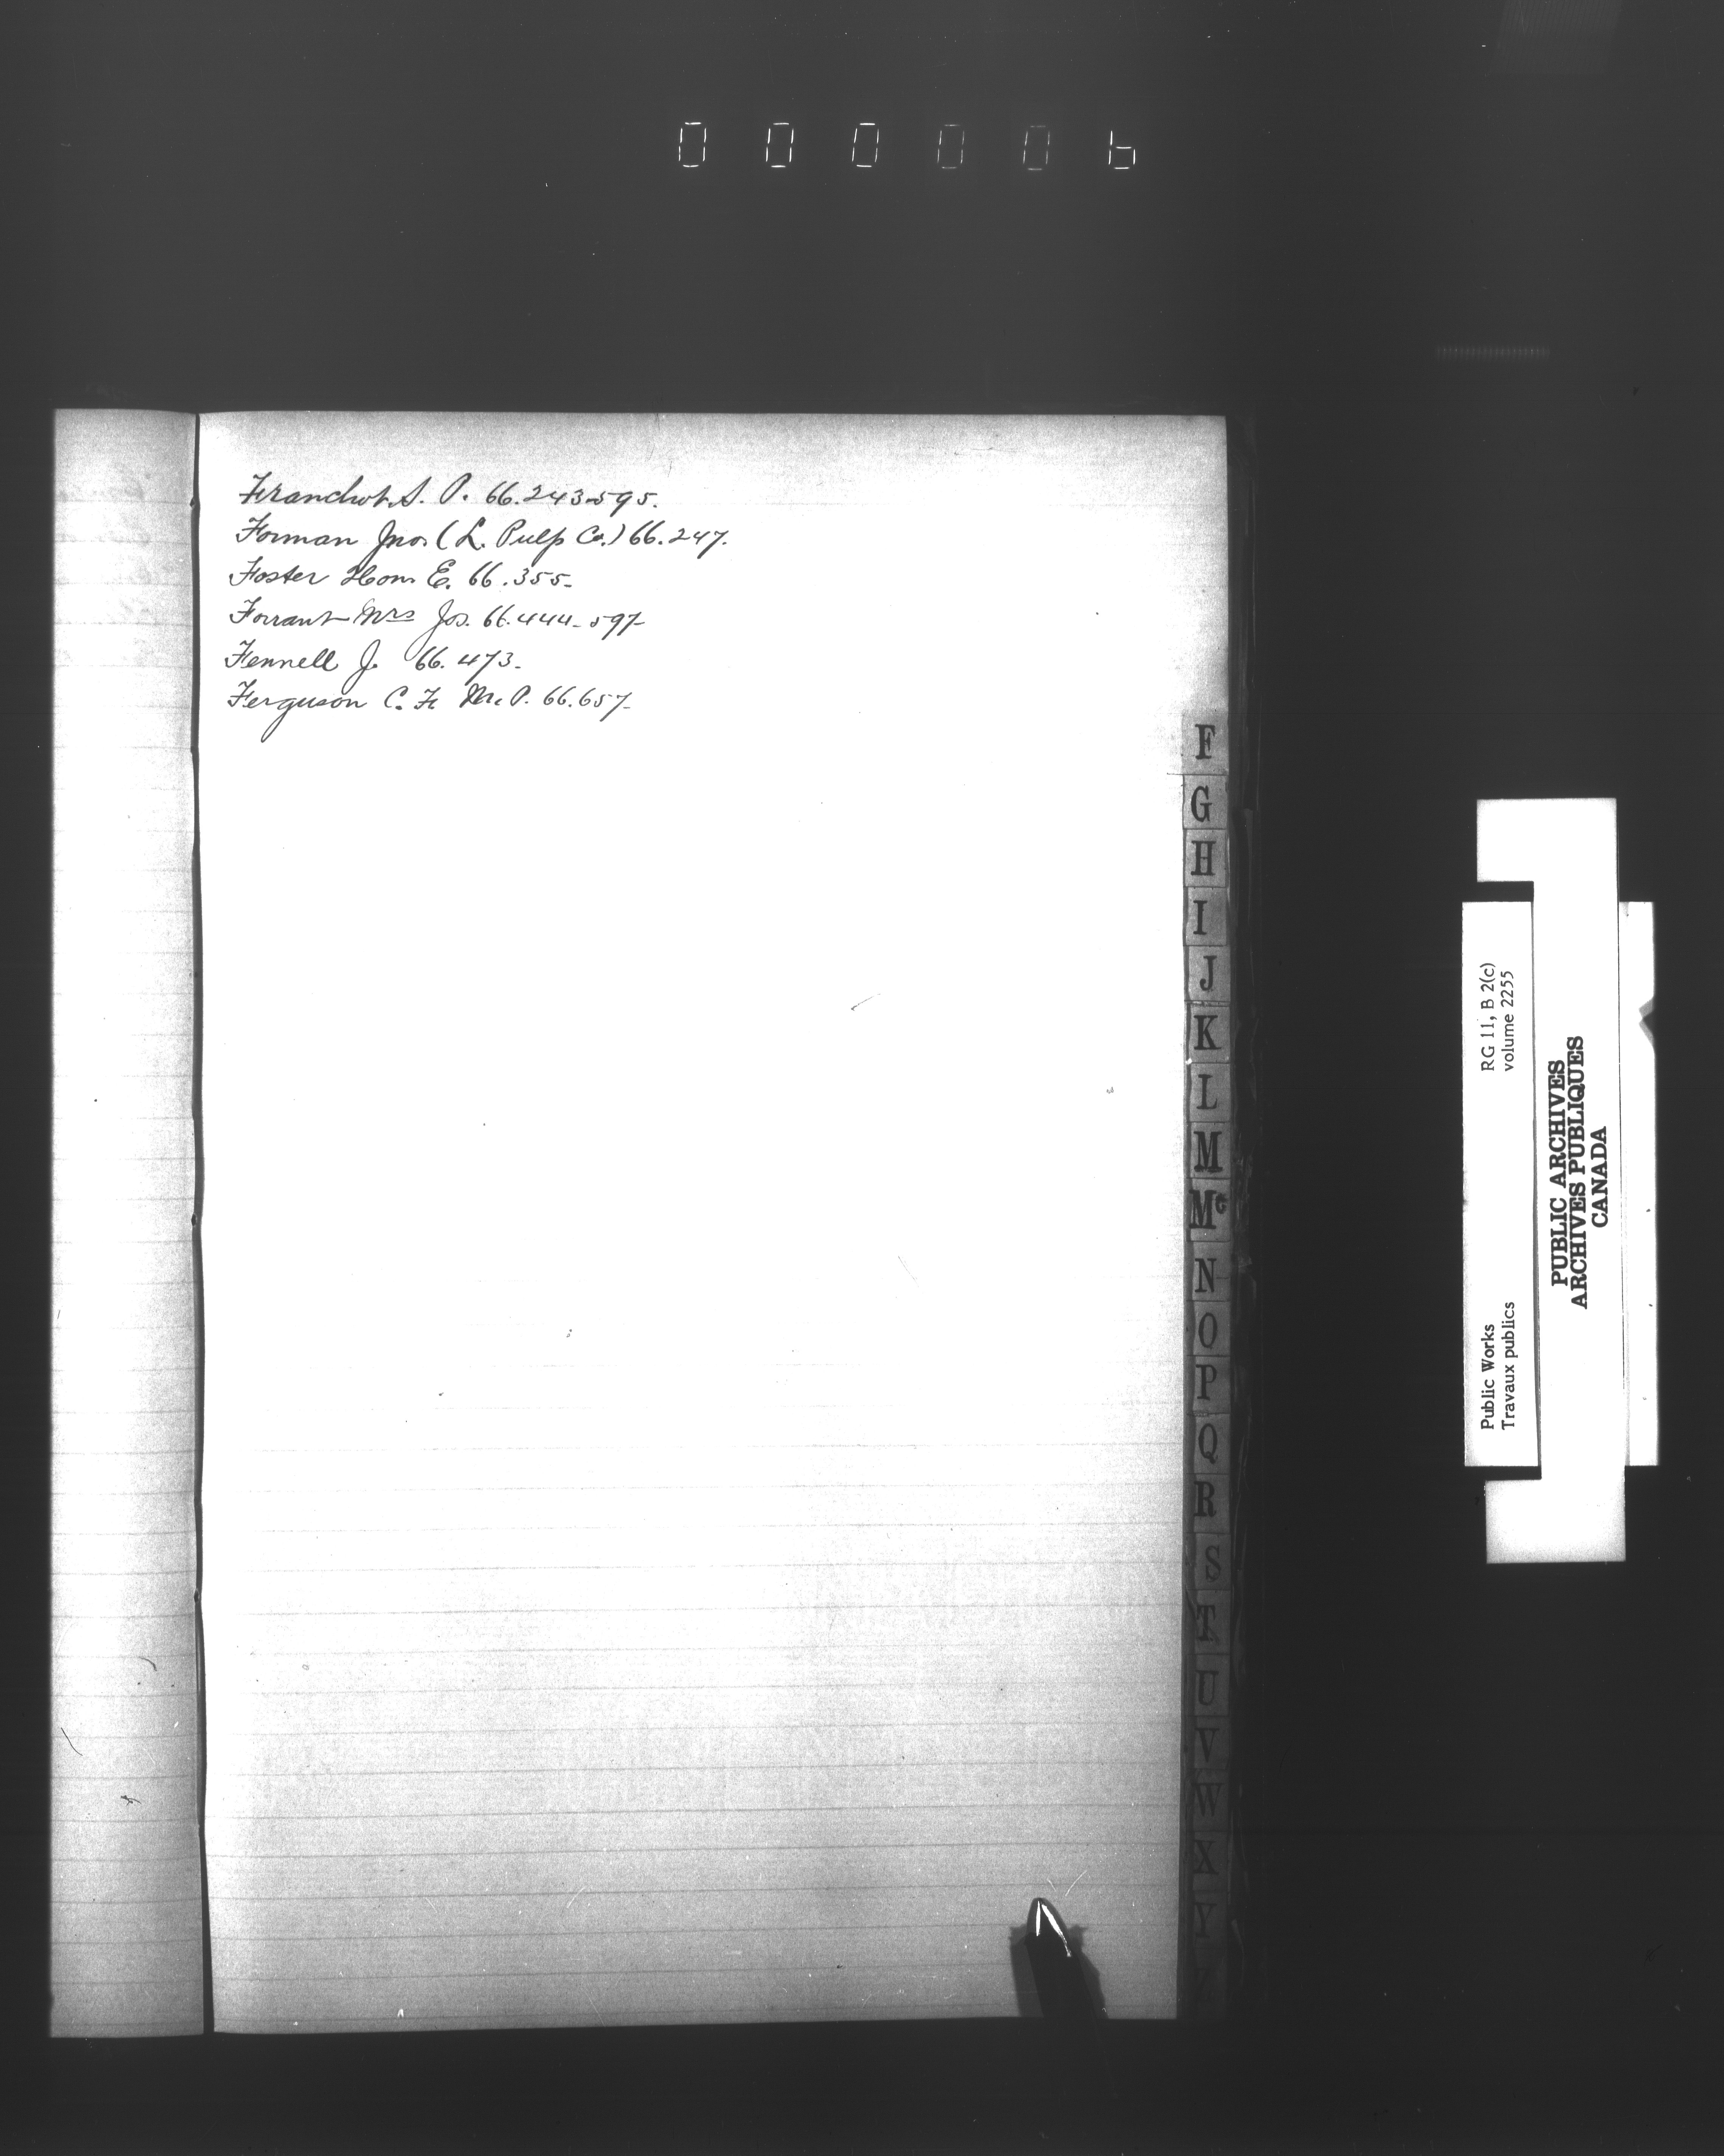 000006
Franchot S. P. 66.243-595.
Forman Jno. (L. Pulp Co.) 66.247.
Foster Hon. E. 66.355-
Forrant Mrs Jos. 66.444-597-
Fennell J. 66.473-
Ferguson C. F. M.P. 66.657-
F
G
H
I
J
K
L
M
Mc
N
O
P
Q
R
S
T
U
V
W
X
Y
Z
Public Works
Travaux publics
RG 11, B 2(c)
volume 2255
PUBLIC ARCHIVES
ARCHIVES PUBLIQUES
CANADA